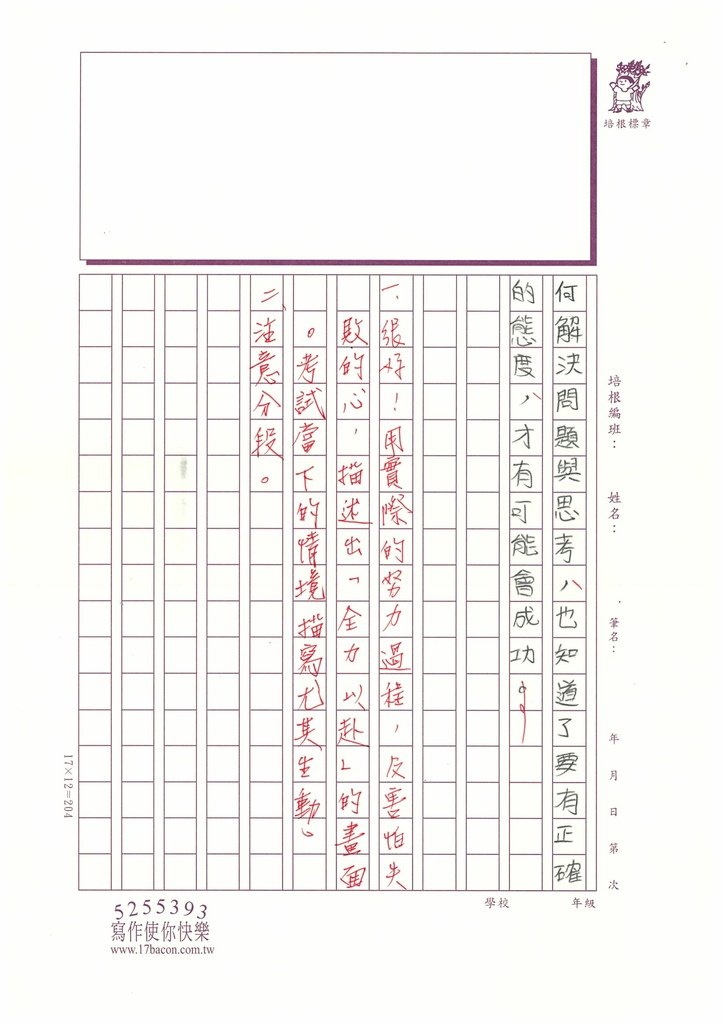 培根標章
培根編班： 姓名： 筆名： 年 月 日 第 次
學校 年級
何解決問題與思考，也知道了要有正確
的態度，才有可能會成功。
一、很好！用實際的努力過程，及害怕失
敗的心，描述出「全力以赴」的畫面
。考試當下的情境描寫尤其生動。
二、注意分段。
17×12=204
5255393
寫作使你快樂
www.17bacon.com.tw